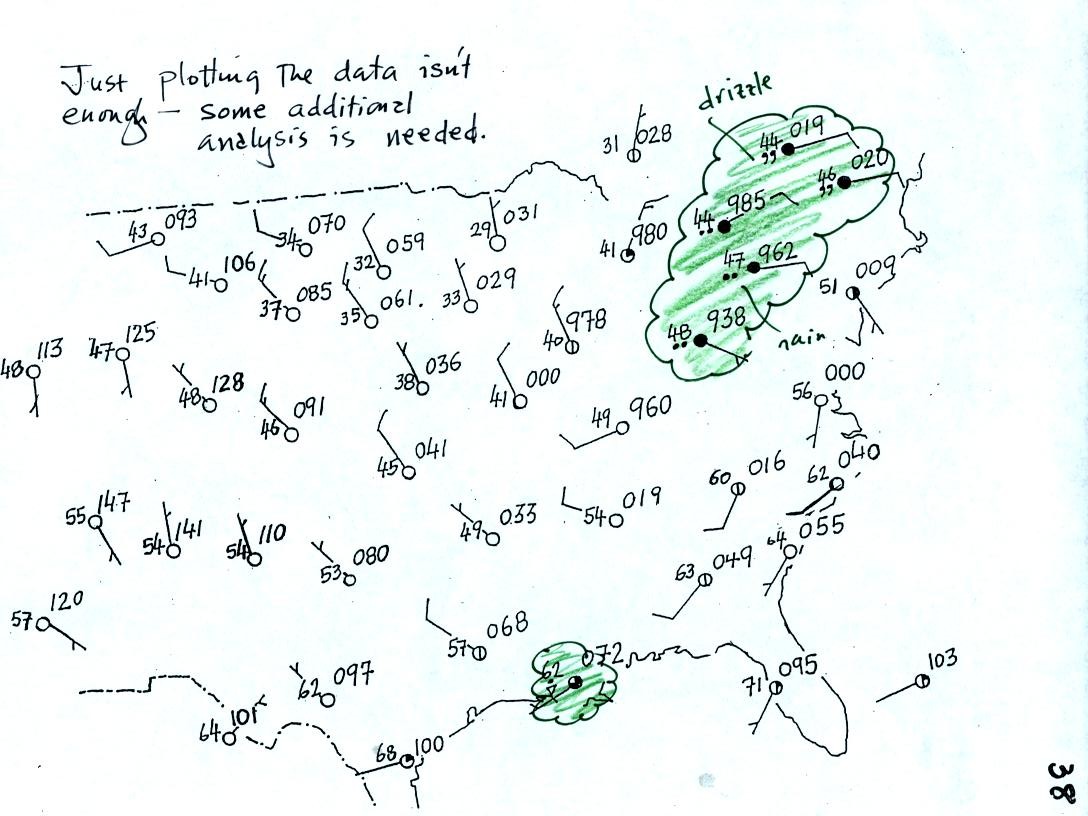 Just plotting The data isn't
enough - some additional
analysis is needed.
drizzle
31 028
44 019
46 020
43 093
34 070
059
32
29 031
41 980
44 985
47 962
41 106
37 085
35 061.
33 029
51 009
40 978
48 938
rain
48 113
47 125
48 128
46 091
38 036
41 000
49 960
56 000
45 041
60 016
62 040
55 147
54 141
54 110
53 080
49 033
54 019
64 055
63 049
57 120
57 068
62 072
62 097
71 095
103
64 101
68 100
38